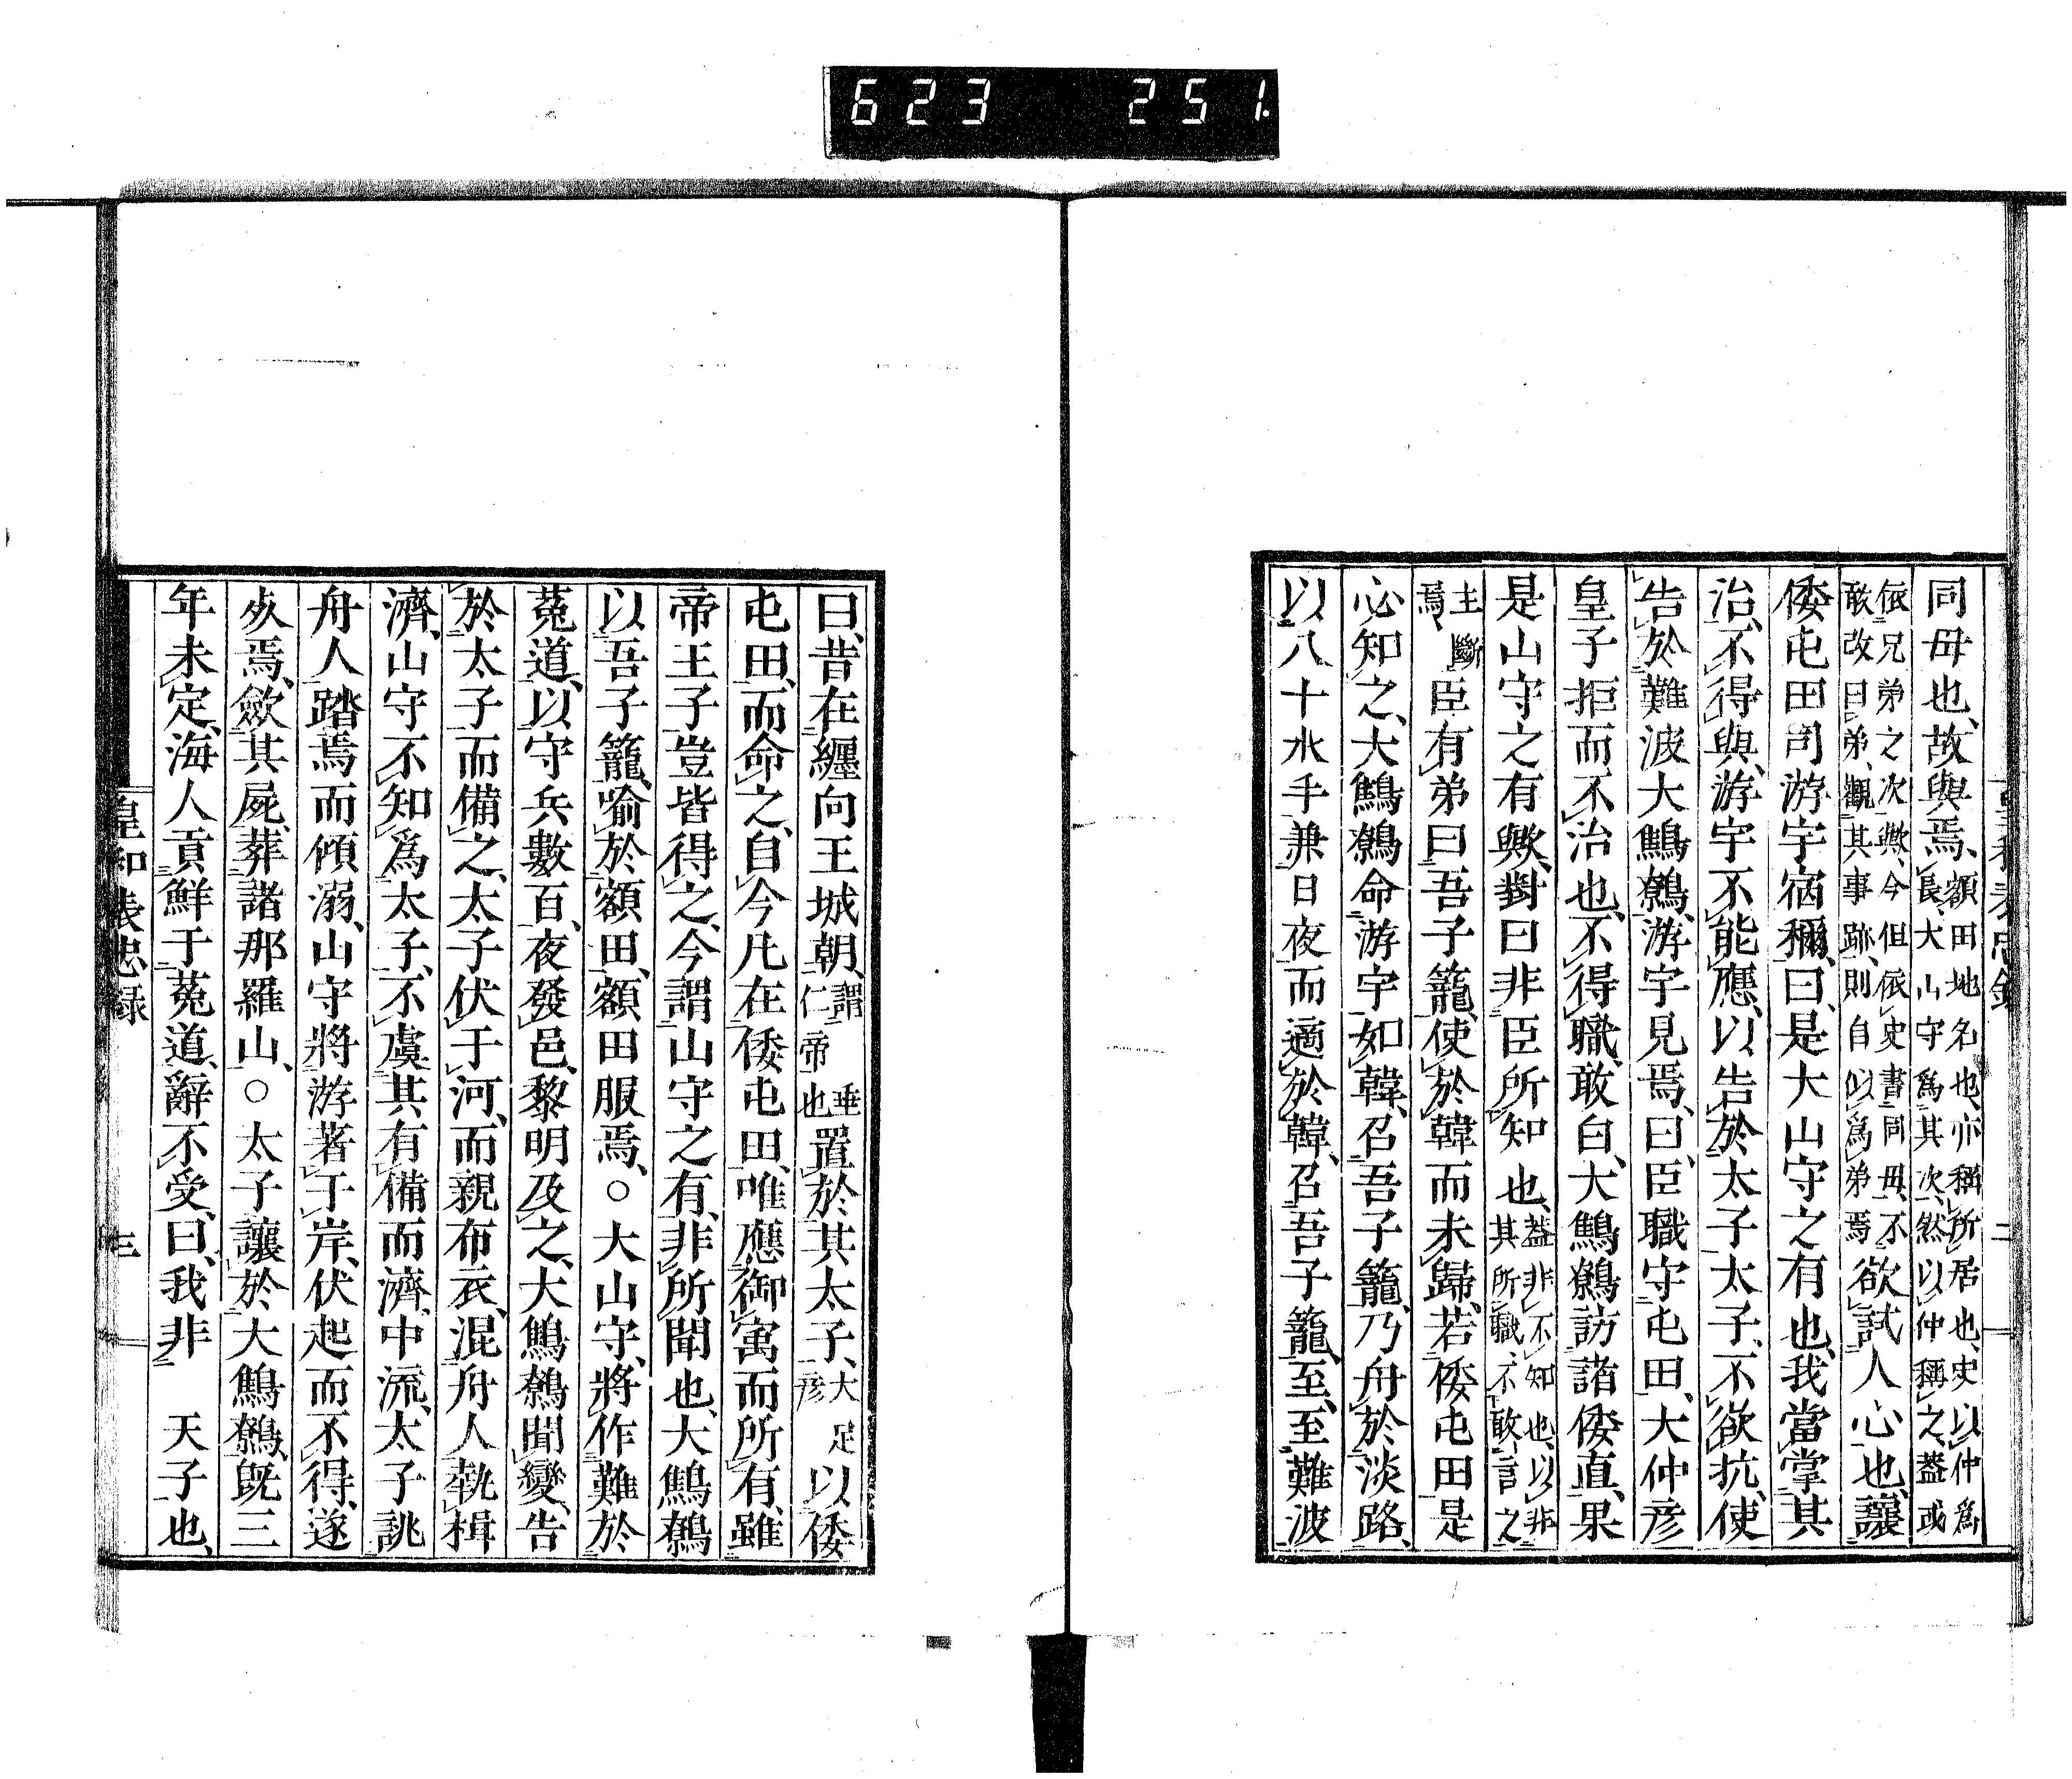 623 251.
同母也、故與焉、額田地名也、亦稱所居也、史以仲爲長、大山守爲其次、然以仲稱之、葢或
依兄弟之次歟、今但依史書同母、不敢改曰弟、觀其事跡、則自似爲弟焉欲試人心也、讓
倭屯田司游宇宿禰、曰、是大山守之有也、我當掌其
治、不得與、游宇不能應、以告於太子、太子不欲抗、使
告於難波大鷦鷯、游宇見焉、曰、臣職守屯田、大仲彦
皇子拒而不治也、不得職、敢白、大鷦鷯訪諸倭直、果
是山守之有歟、對曰非臣所知也、葢非不知也、以非其所職、不敢言之
主斷焉、臣有弟曰吾子籠、使於韓而未歸、若倭屯田是
必知之、大鷦鷯命游宇如韓、召吾子籠、乃舟於淡路、
以八十水手兼日夜而適於韓、召吾子籠、至、至難波
二
曰、昔在纏向王城朝、謂垂仁帝也置於其太子、大足彦以倭
屯田、而命之、自今凡在倭屯田、唯應御寓而所有、雖
帝王子豈皆得之、今謂山守之有、非所聞也、大鷦鷯
以吾子籠、喻於額田、額田服焉、○大山守、將作難於
菟道、以守兵數百、夜發邑、黎明及之、大鷦鷯聞變、告
於太子而備之、太子伏于河、而親布衣、混舟人執楫
濟、山守不知爲太子、不虞其有備而濟、中流、太子誂
舟人踏焉而傾溺、山守將游著于岸、伏起而不得、遂
歿焉、歛其屍、葬諸那羅山、○太子讓於大鷦鷯、旣三
年未定、海人貢鮮于菟道、辭不受、曰、我非　天子也、
皇和表忠録　三